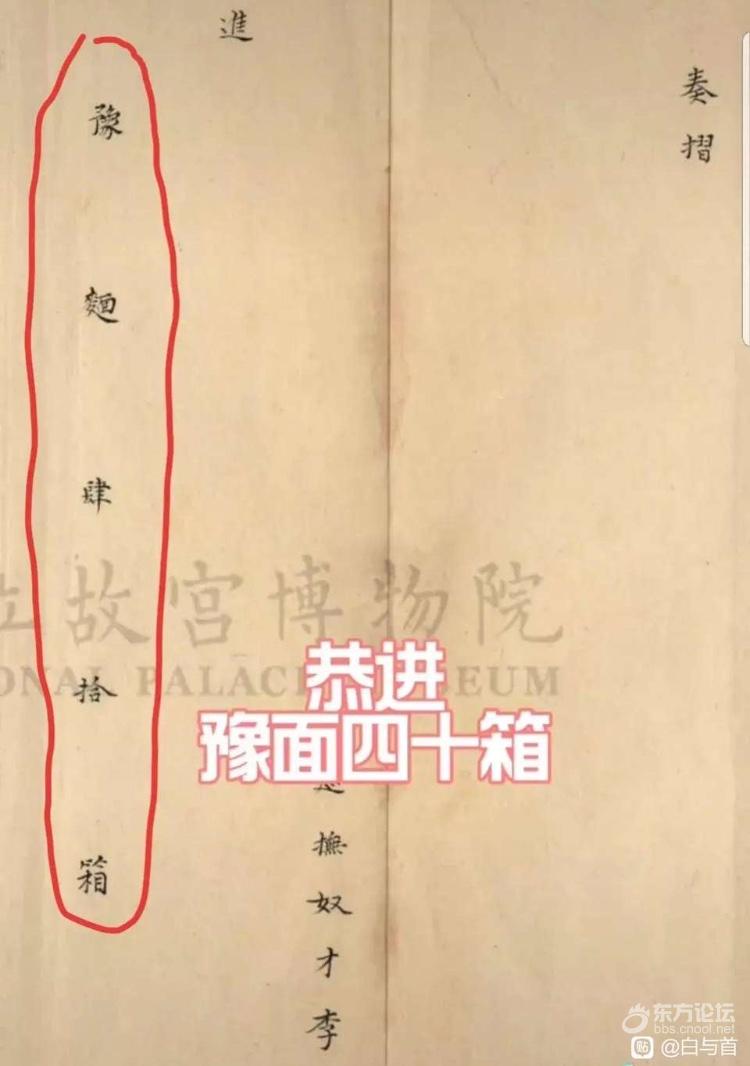 奏摺
撫奴才李
進
豫麵肆拾箱
立故宮博物院
ONAL PALACE MUSEUM
恭进
豫面四十箱
东方论坛
bbs.cnool.net
贴 @白与首